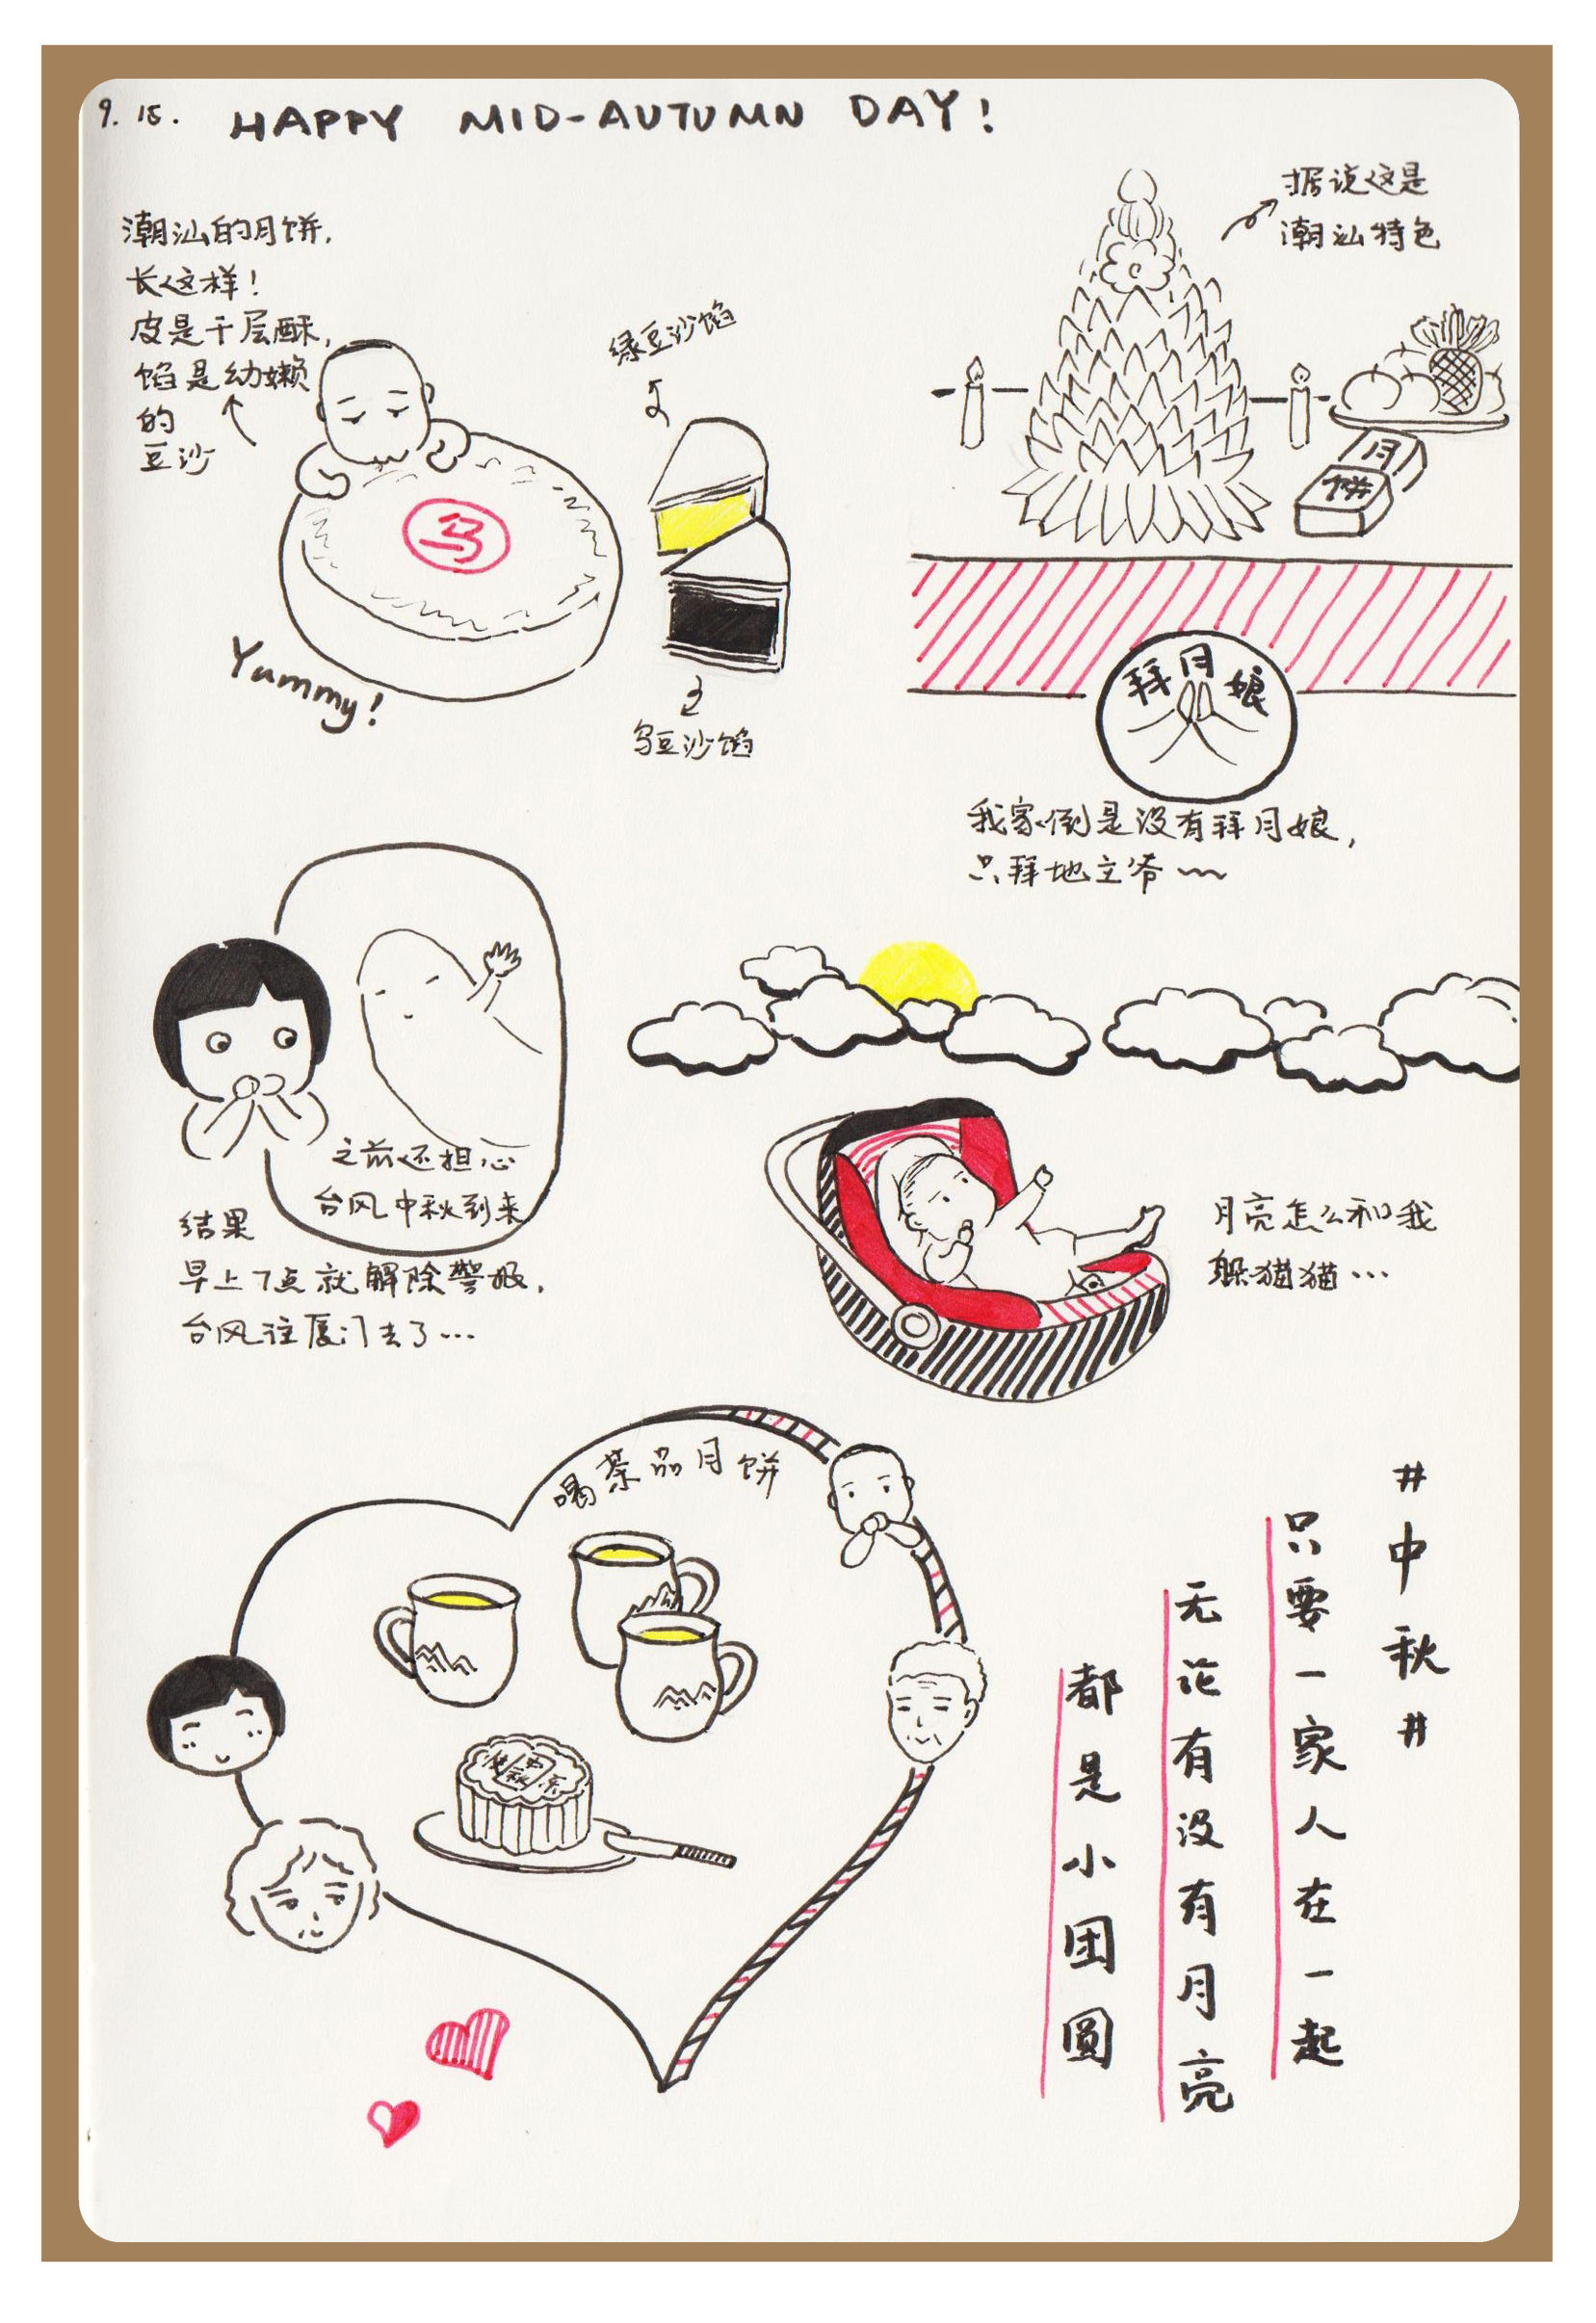 9. 15. HAPPY MID-AUTUMN DAY!
潮汕的月饼,
长这样!
皮是千层酥,
馅是幼嫩
的
豆沙
乌
Yummy!
绿豆沙馅
乌豆沙馅
据说这是
潮汕特色
月
饼
拜月娘
我家倒是没有拜月娘,
只拜地主爷~~
之前还担心
台风中秋到来
结果
早上7点就解除警报,
台风往厦门去了...
月亮怎么和我
躲猫猫...
喝茶品月饼
中
秋
#中秋#
只要一家人在一起
无论有没有月亮
都是小团圆